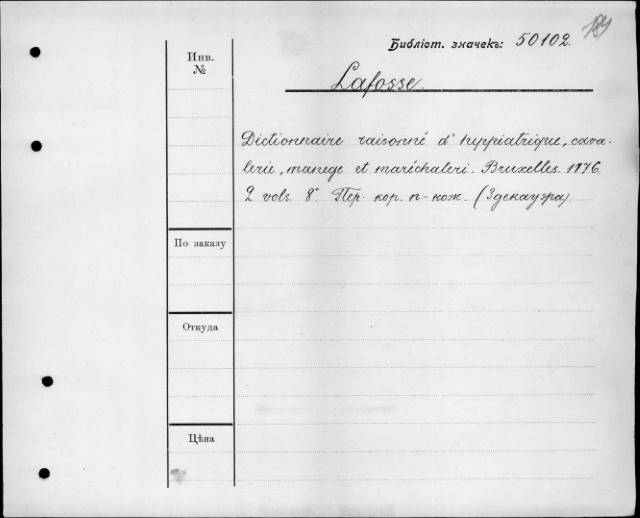 189
Библіот. значекъ: 50102.
Инв.
№
Lafosse.
Dictionnaire raisonné d'hyppiatrique, cava-
lerie, manege et maréchaleri. Bruxelles. 1776.
2 vols. 8°. Пер. кор. п-кож. (Здекауэра)
По заказу
Откуда
Цѣна